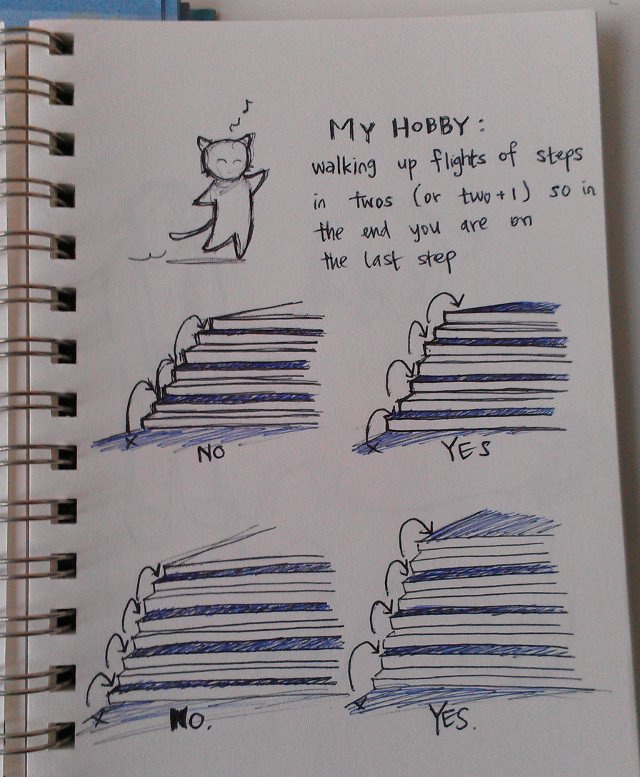 MY HOBBY:
walking up flights of steps
in twos (or two+1) so in
the end you are on
the last step
NO
YES
NO.
YES.